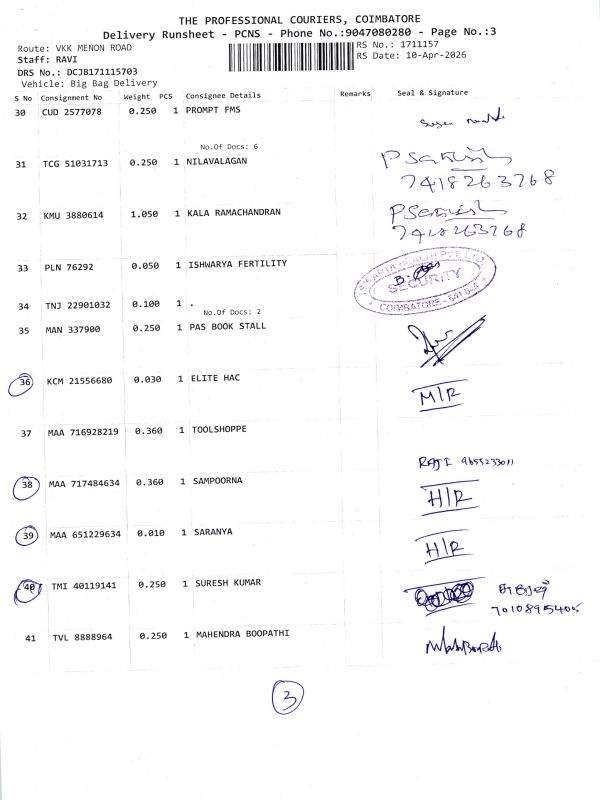 THE PROFESSIONAL COURIERS, COIMBATORE
Delivery Runsheet - PCNS - Phone No.:9047080280 - Page No.:3
Route: VKK MENON ROAD
RS No.: 1711157
Staff: RAVI
RS Date: 10-Apr-2026
DRS No.: DCJB171115703
Vehicle: Big Bag Delivery
S No Consignment No Weight PCS Consignee Details Remarks Seal & Signature
30 CUD 2577078 0.250 1 PROMPT FMS
No.Of Docs: 6
31 TCG 51031713 0.250 1 NILAVALAGAN
7418263768
32 KMU 3880614 1.050 1 KALA RAMACHANDRAN
7418263768
33 PLN 76292 0.050 1 ISHWARYA FERTILITY
SECURITY
COIMBATORE
34 TNJ 22901032 0.100 1 .
No.Of Docs: 2
35 MAN 337900 0.250 1 PAS BOOK STALL
36 KCM 21556680 0.030 1 ELITE HAC
M/R
37 MAA 716928219 0.360 1 TOOLSHOPPE
RAJI 9655233011
38 MAA 717484634 0.360 1 SAMPOORNA
H/R
39 MAA 651229634 0.010 1 SARANYA
H/R
40 TMI 40119141 0.250 1 SURESH KUMAR
7010895405
41 TVL 8888964 0.250 1 MAHENDRA BOOPATHI
3